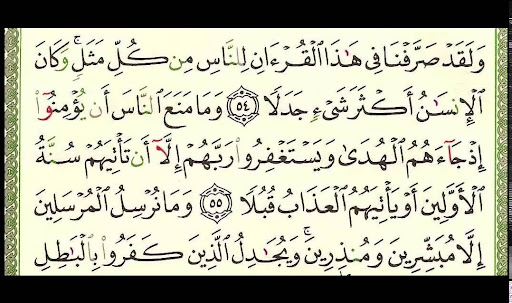 وَلَقَدْ صَرَّفْنَا فِي هَٰذَا ٱلْقُرْءَانِ لِلنَّاسِ مِن كُلِّ مَثَلٍۚ وَكَانَ
ٱلْإِنسَٰنُ أَكْثَرَ شَىْءٍ جَدَلًا ٥٤ وَمَا مَنَعَ ٱلنَّاسَ أَن يُؤْمِنُوٓا۟
إِذْ جَآءَهُمُ ٱلْهُدَىٰ وَيَسْتَغْفِرُوا۟ رَبَّهُمْ إِلَّآ أَن تَأْتِيَهُمْ سُنَّةُ
ٱلْأَوَّلِينَ أَوْ يَأْتِيَهُمُ ٱلْعَذَابُ قُبُلًا ٥٥ وَمَا نُرْسِلُ ٱلْمُرْسَلِينَ
إِلَّا مُبَشِّرِينَ وَمُنذِرِينَۚ وَيُجَٰدِلُ ٱلَّذِينَ كَفَرُوا۟ بِٱلْبَٰطِلِ